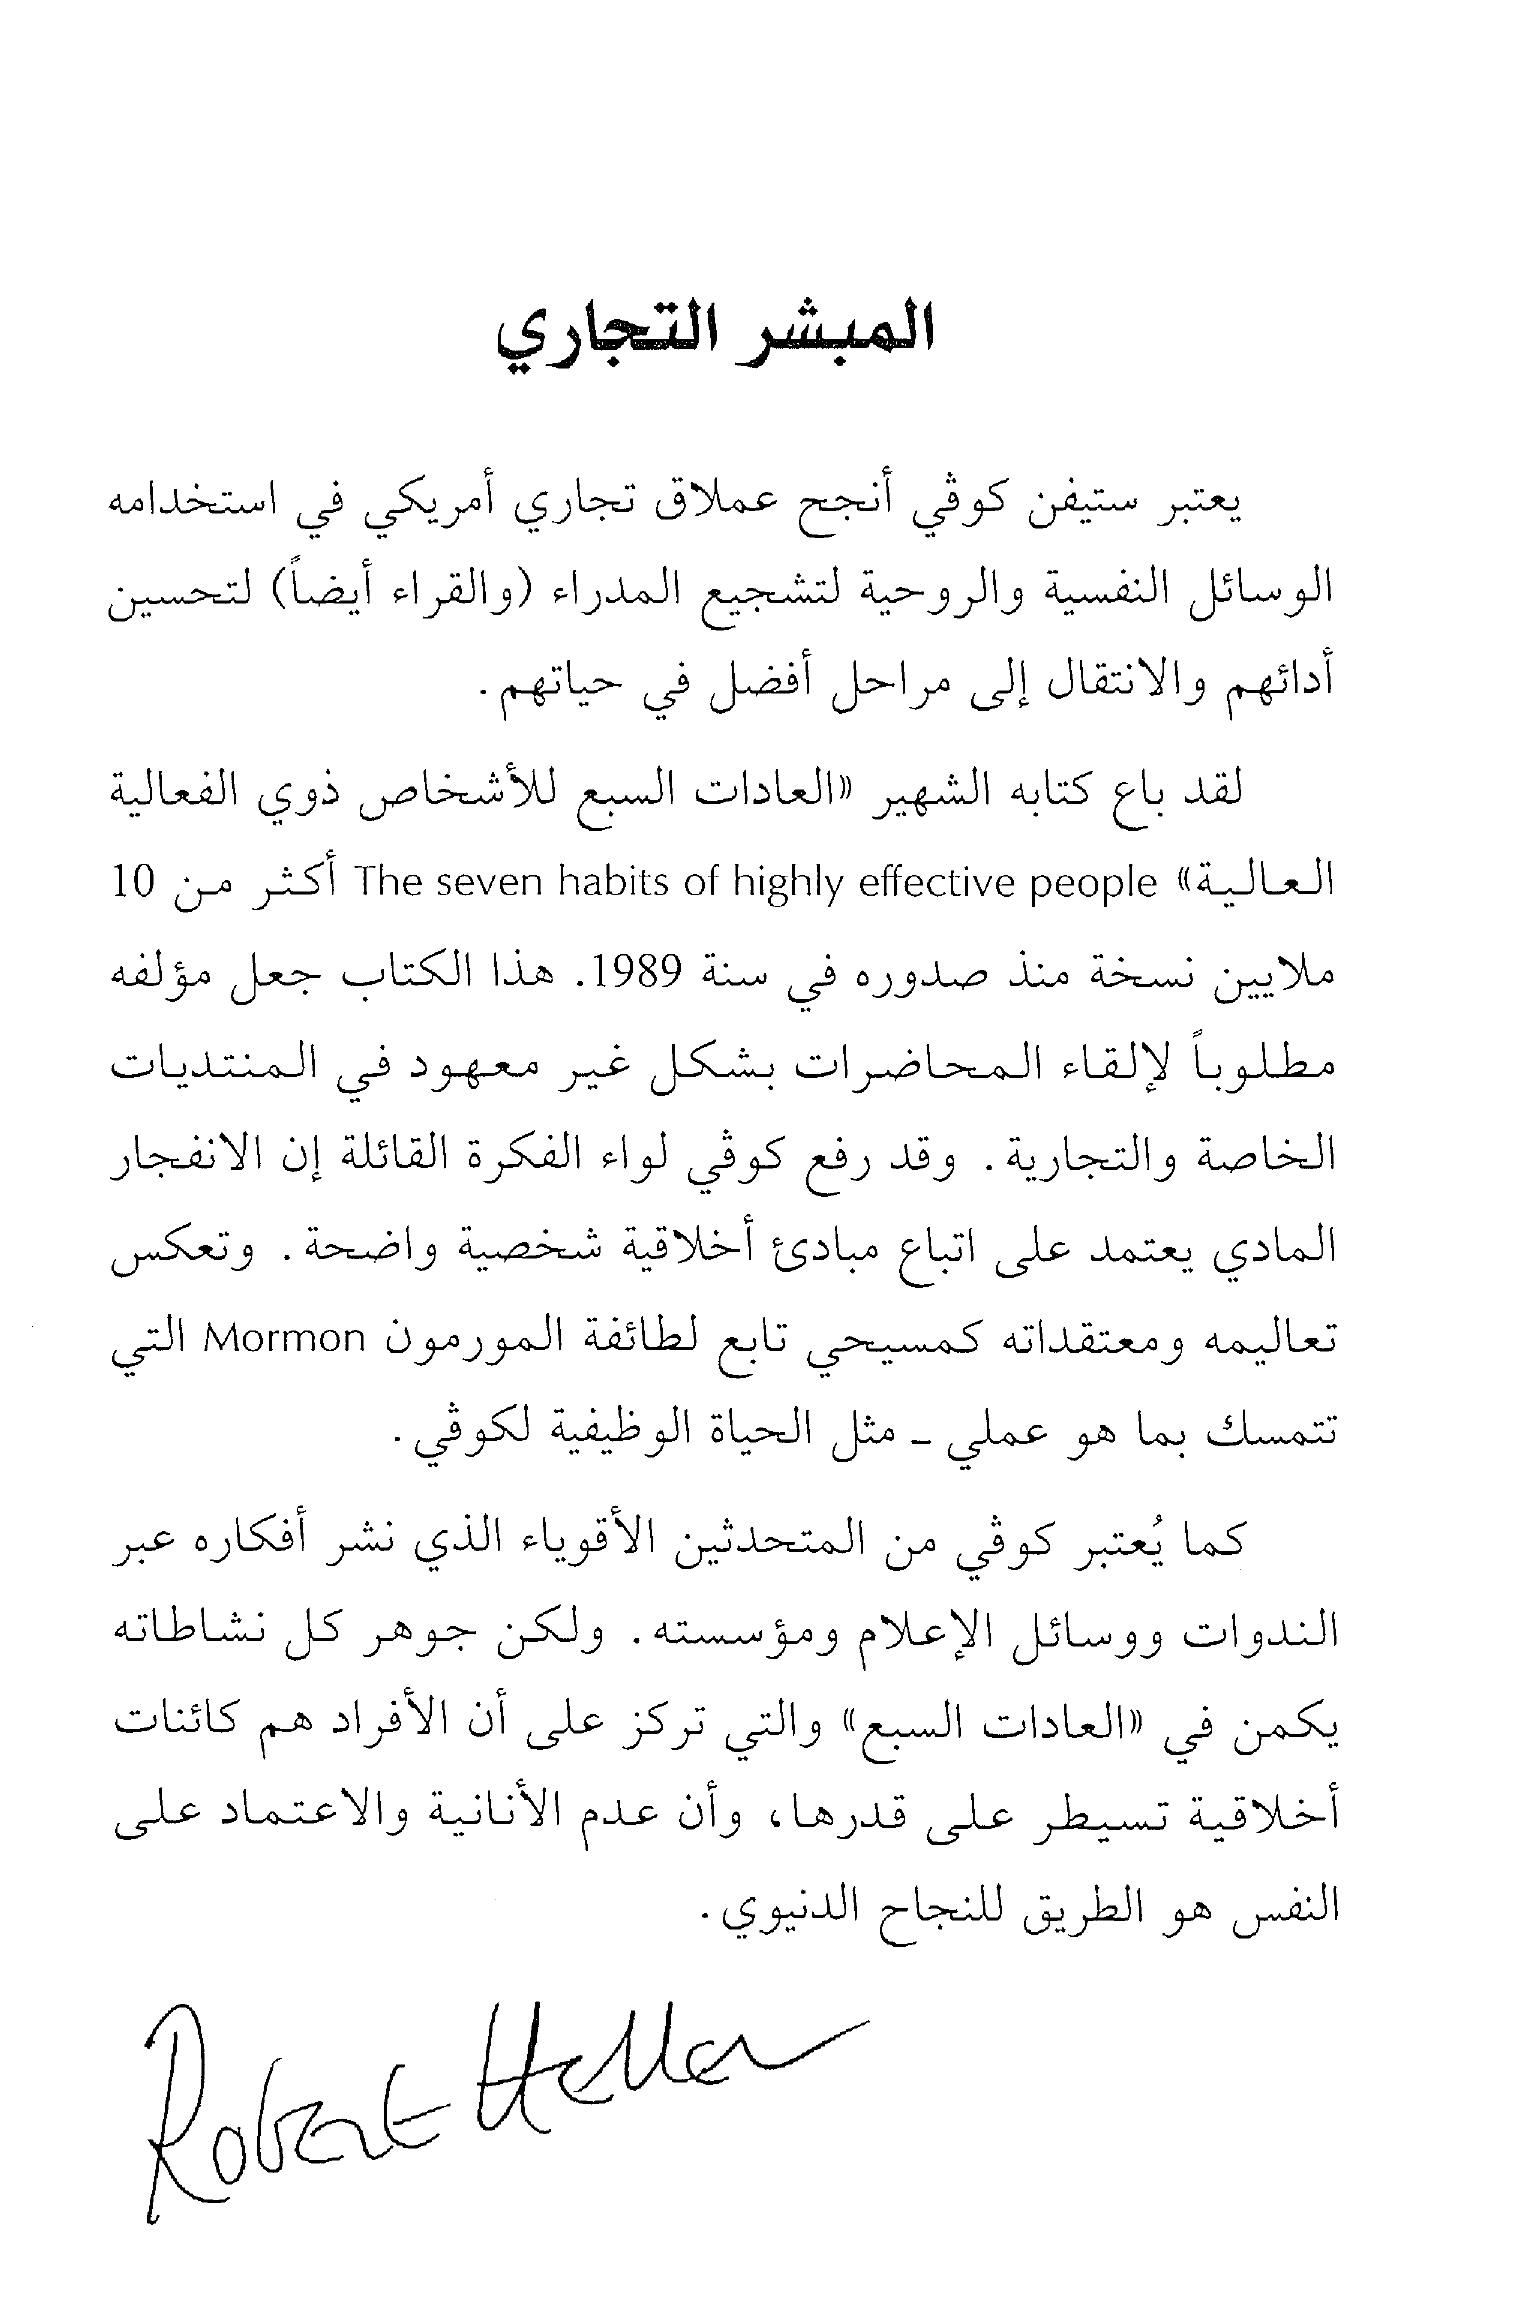 المبشر التجاري
يعتبر ستيفن كوڤي أنجح عملاق تجاري أمريكي في استخدامه
الوسائل النفسية والروحية لتشجيع المدراء (والقراء أيضاً) لتحسين
أدائهم والانتقال إلى مراحل أفضل في حياتهم.
لقد باع كتابه الشهير «العادات السبع للأشخاص ذوي الفعالية
العالية» The seven habits of highly effective people أكثر من 10
ملايين نسخة منذ صدوره في سنة 1989. هذا الكتاب جعل مؤلفه
مطلوباً لإلقاء المحاضرات بشكل غير معهود في المنتديات
الخاصة والتجارية. وقد رفع كوڤي لواء الفكرة القائلة إن الانفجار
المادي يعتمد على اتباع مبادئ أخلاقية شخصية واضحة. وتعكس
تعاليمه ومعتقداته كمسيحي تابع لطائفة المورمون Mormon التي
تتمسك بما هو عملي ـ مثل الحياة الوظيفية لكوڤي.
كما يُعتبر كوڤي من المتحدثين الأقوياء الذي نشر أفكاره عبر
الندوات ووسائل الإعلام ومؤسسته. ولكن جوهر كل نشاطاته
يكمن في «العادات السبع» والتي تركز على أن الأفراد هم كائنات
أخلاقية تسيطر على قدرها، وأن عدم الأنانية والاعتماد على
النفس هو الطريق للنجاح الدنيوي.
Robert Heller